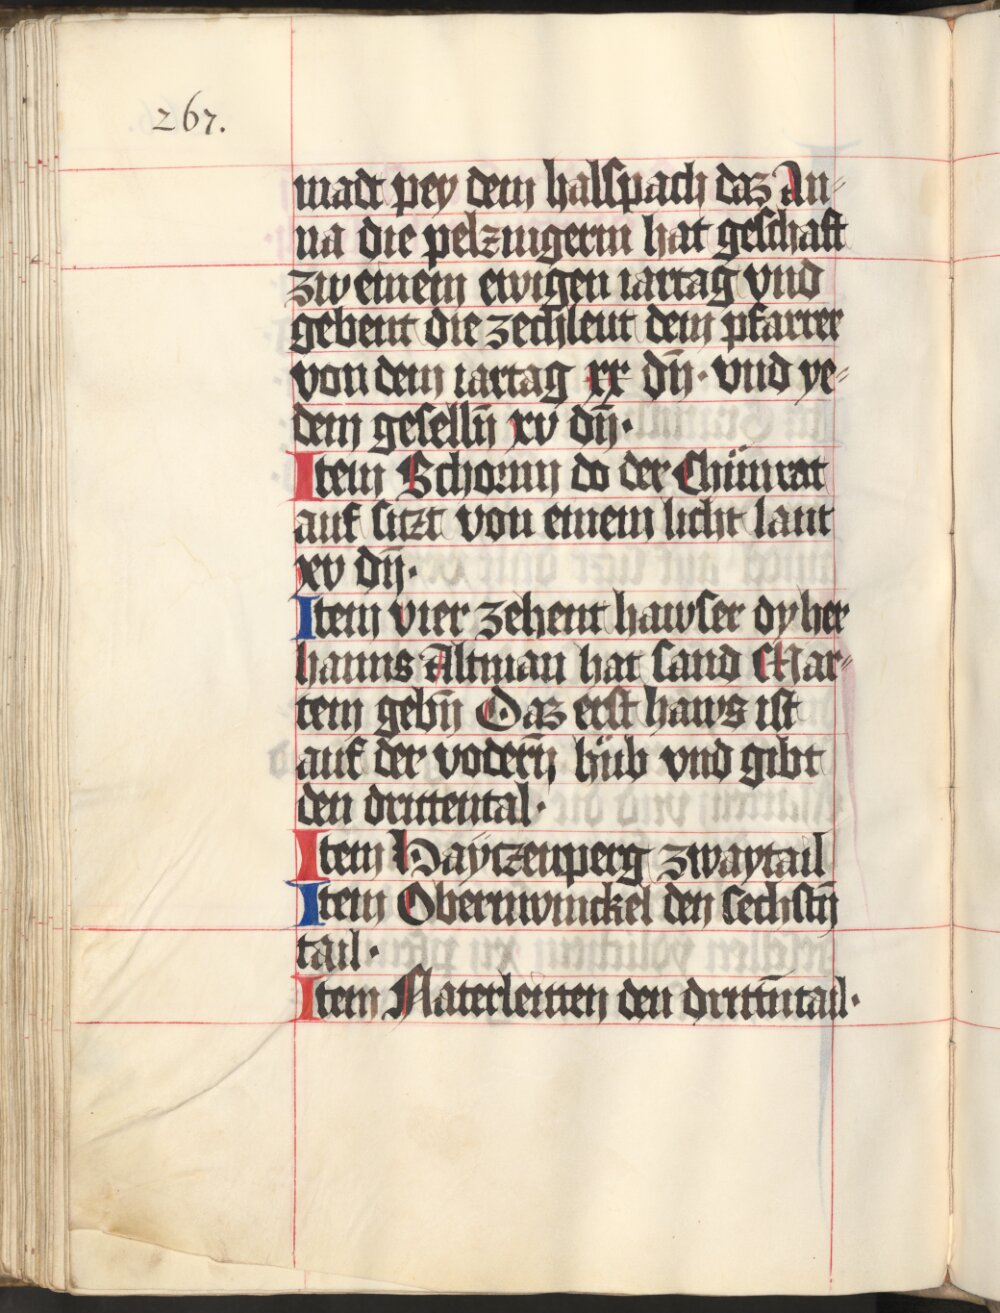 267.
madt pey dem halspach daz An⸗
na die pelzingerin hat geschaft
zw einem ewigen iartag vnd
gebent die zechleut dem pfarrer
von dem iartag xx dn̄· vnd ye⸗
dem geselln̄ xv dn̄·
Item Schornn do der Chünrat
auf sitzt von einem licht laut
xv dn̄·
Item vier zehent hawser dy her
hanns Altman hat sand Mar⸗
tein gebn̄ Daz erst haws ist
auf der vodern̄ hůb vnd gibt
den drittentail·
Item Haÿtzenperg zwaytail
Item Obernwinckel den sechstn̄
tail·
Item Naterleitten den drittn̄tail·